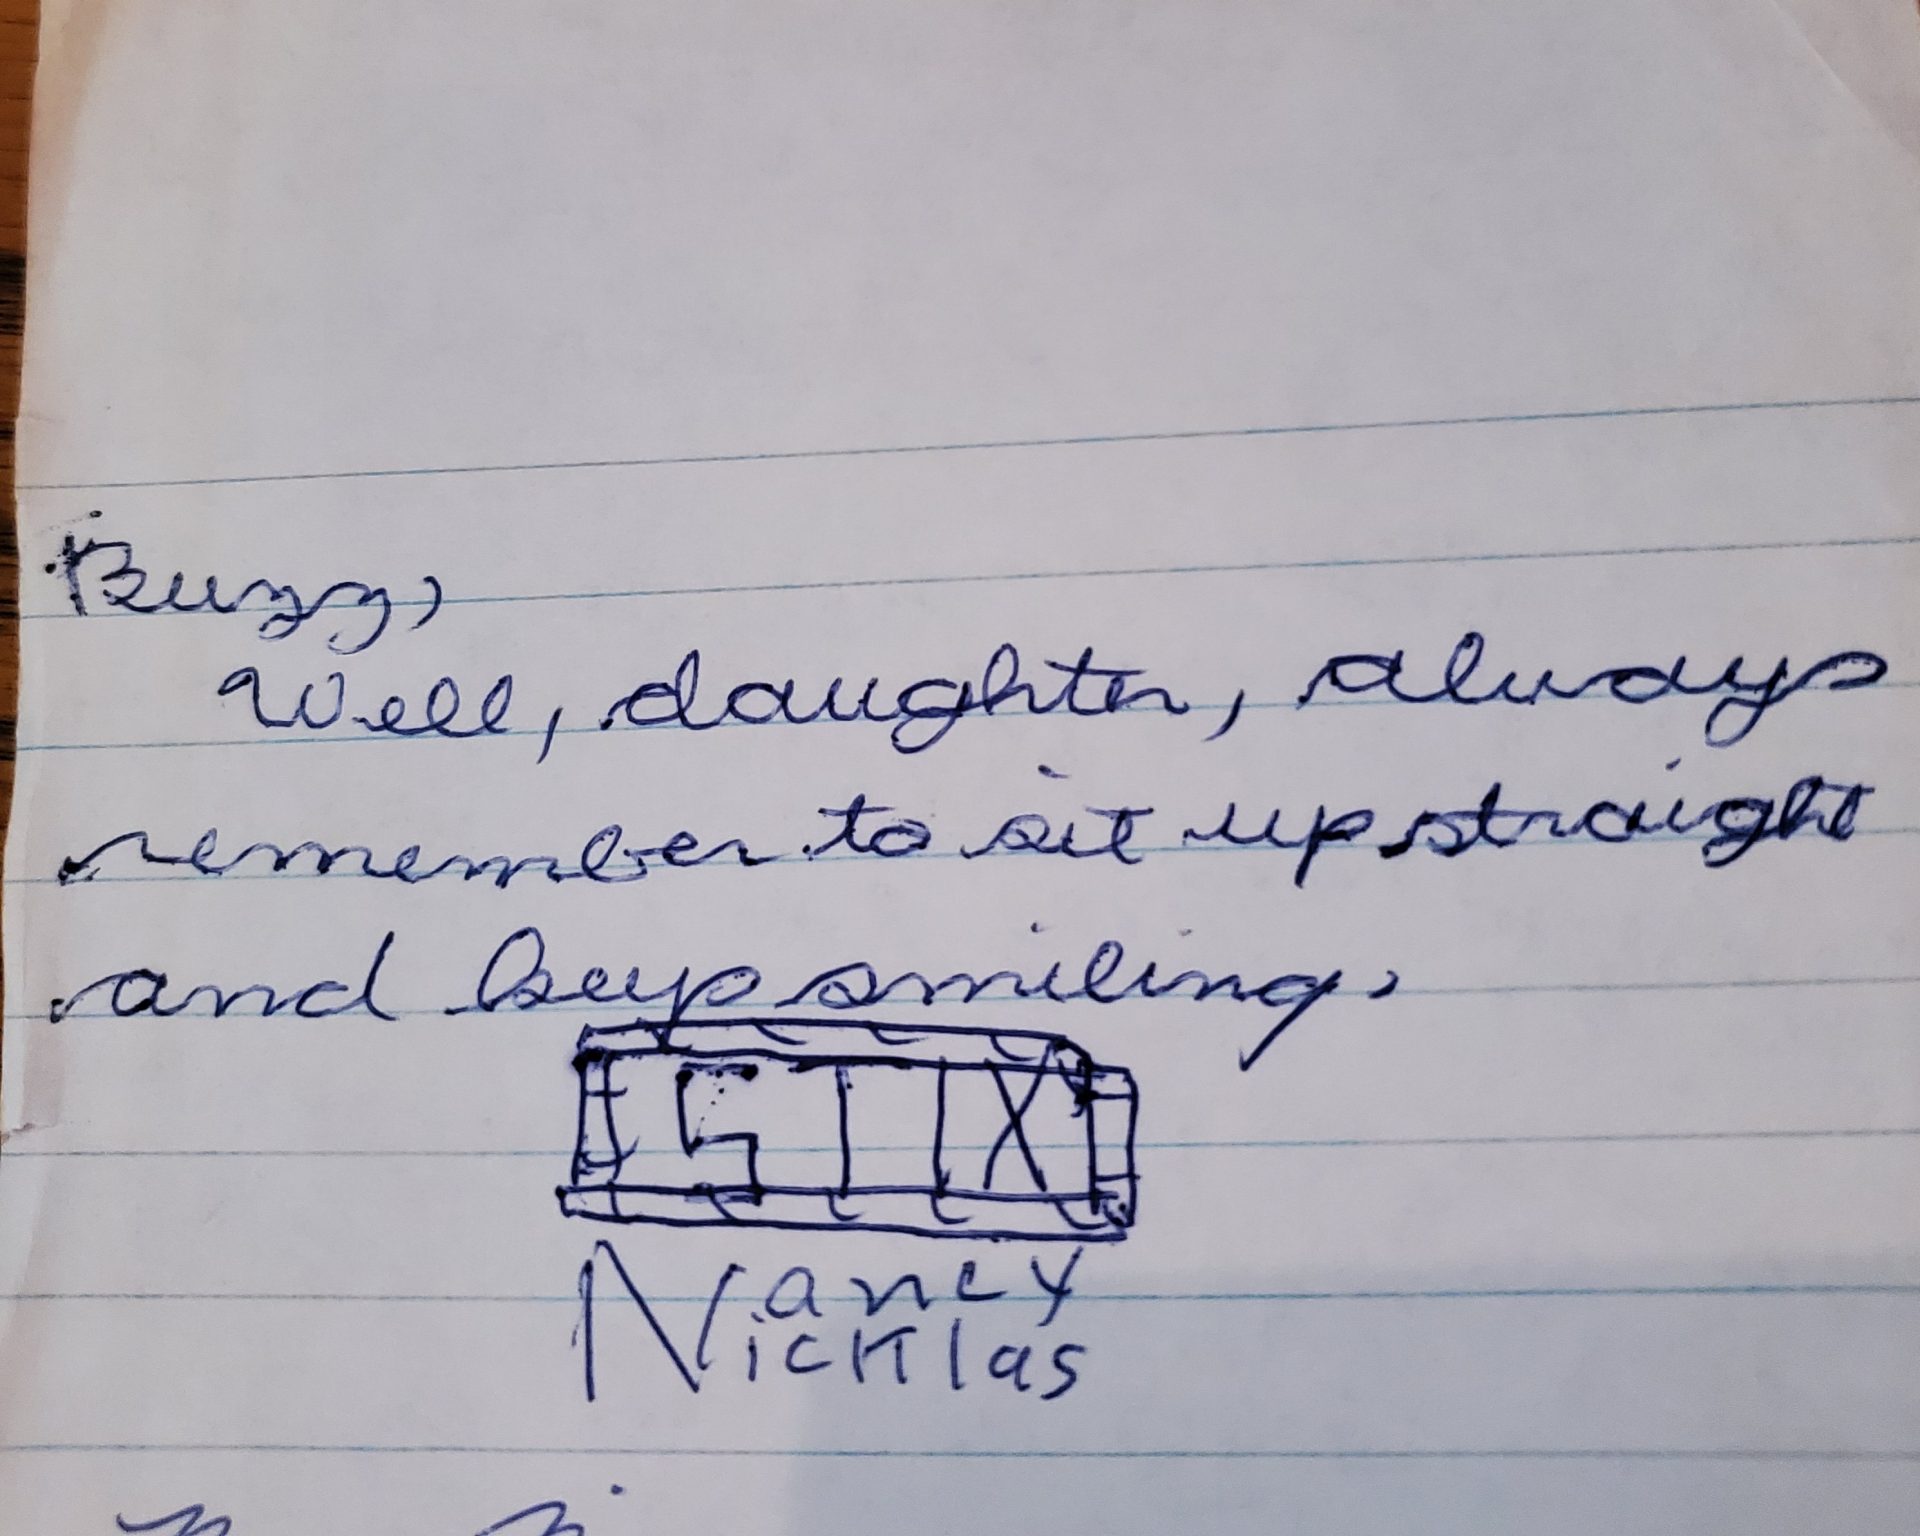 Buzz,
Well, daughter, always
remember to sit up straight
and keep smiling.
STIX
Nancy
Nicklas